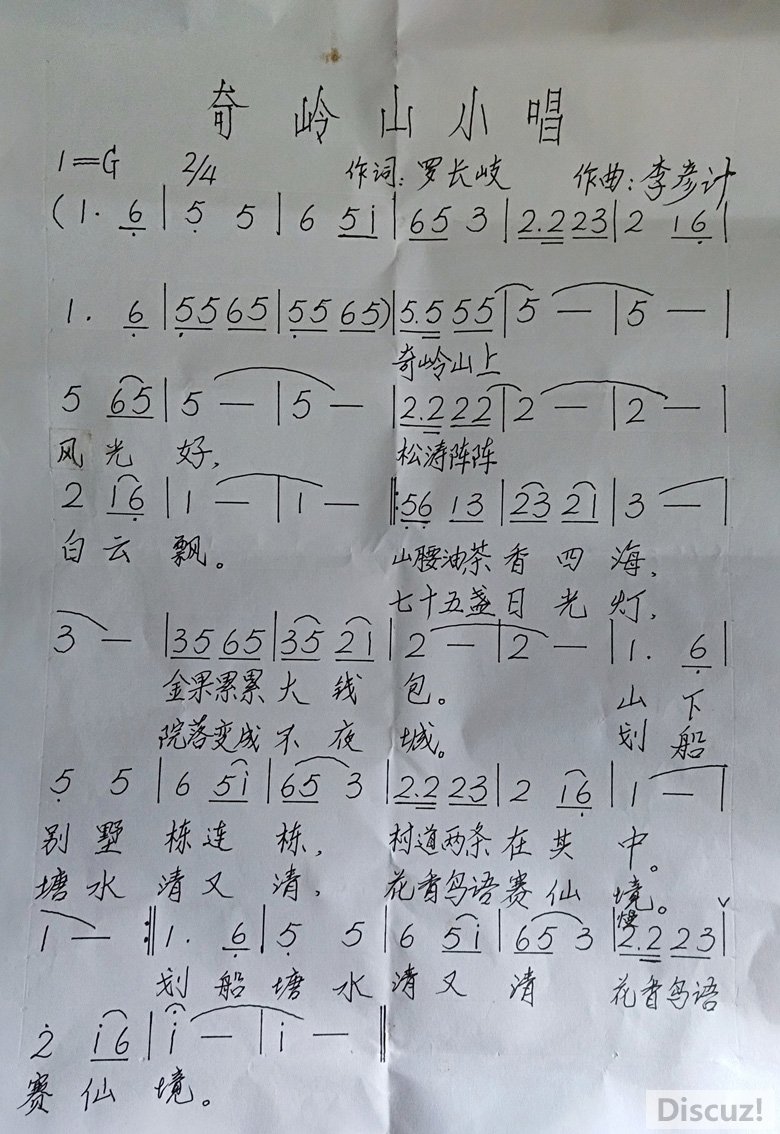 奇岭山小唱
1=G 2/4 作词:罗长岐 作曲:李彦计
(1. 6̣ | 5̣ 5 | 6 5i | 65 3 | 2.2 23 | 2 16̣ |
1. 6̣ | 5̣5 65 | 5̣5 65) | 5.5 55 | 5 — | 5 — |
奇岭山上
5 65 | 5 — | 5 — | 2.2 22 | 2 — | 2 — |
风光好, 松涛阵阵
2 16̣ | 1 — | 1 — ‖: 5̣6̣ 13 | 23 21 | 3 — |
白云飘。 山腰油茶香四海,
七十五盏日光灯,
3 — | 35 65 | 35 21 | 2 — | 2 — | 1. 6̣ |
金果累累大钱包。 山下
院落变成不夜城。 划船
5̣ 5 | 6 5i | 65 3 | 2.2 23 | 2 16̣ | 1 — |
别墅栋连栋, 村道两条在其中。
塘水清又清, 花香鸟语赛仙境。
慢
1 — :‖ 1. 6̣ | 5̣ 5 | 6 5i | 65 3 | 2.2 23 ∨ |
划船塘水清又清 花香鸟语
2̇ i6 | i — | i — ‖
赛仙境。
Discuz!